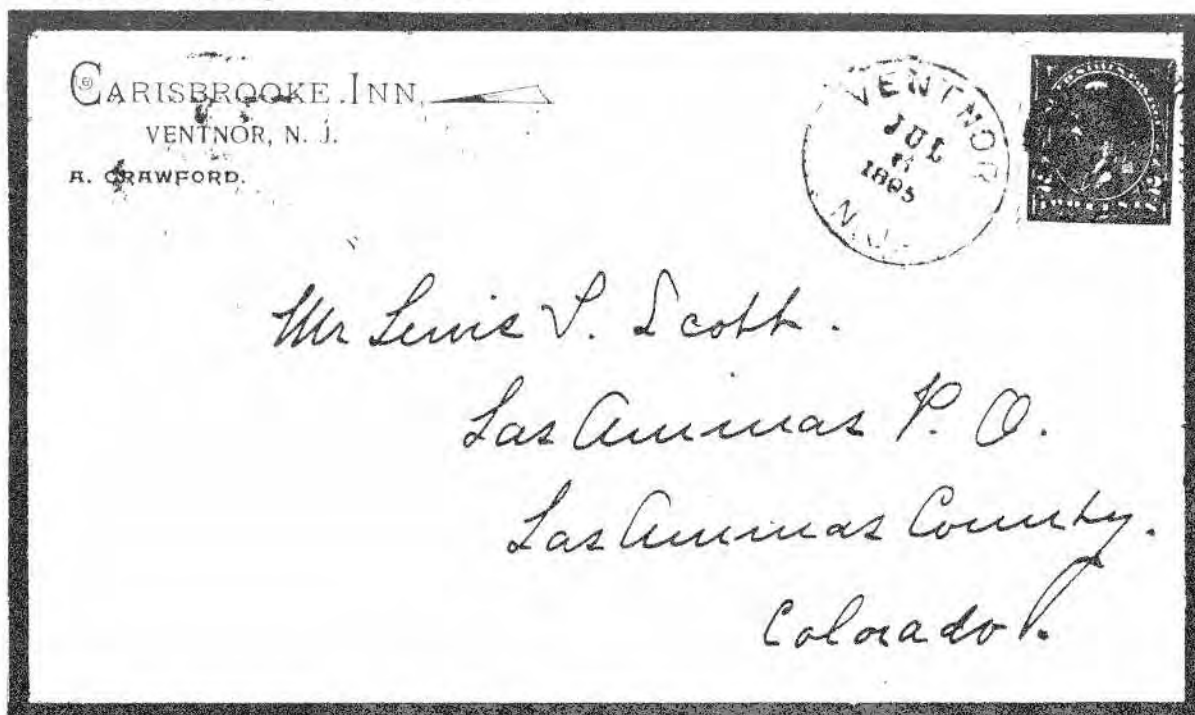 CARISBROOKE INN,
VENTNOR, N. J.
A. CRAWFORD.
VENTNOR
JUL
1895
N.J.
Mr Lewis S. Scott.
Las Animas P. O.
Las Animas County.
Colorado.